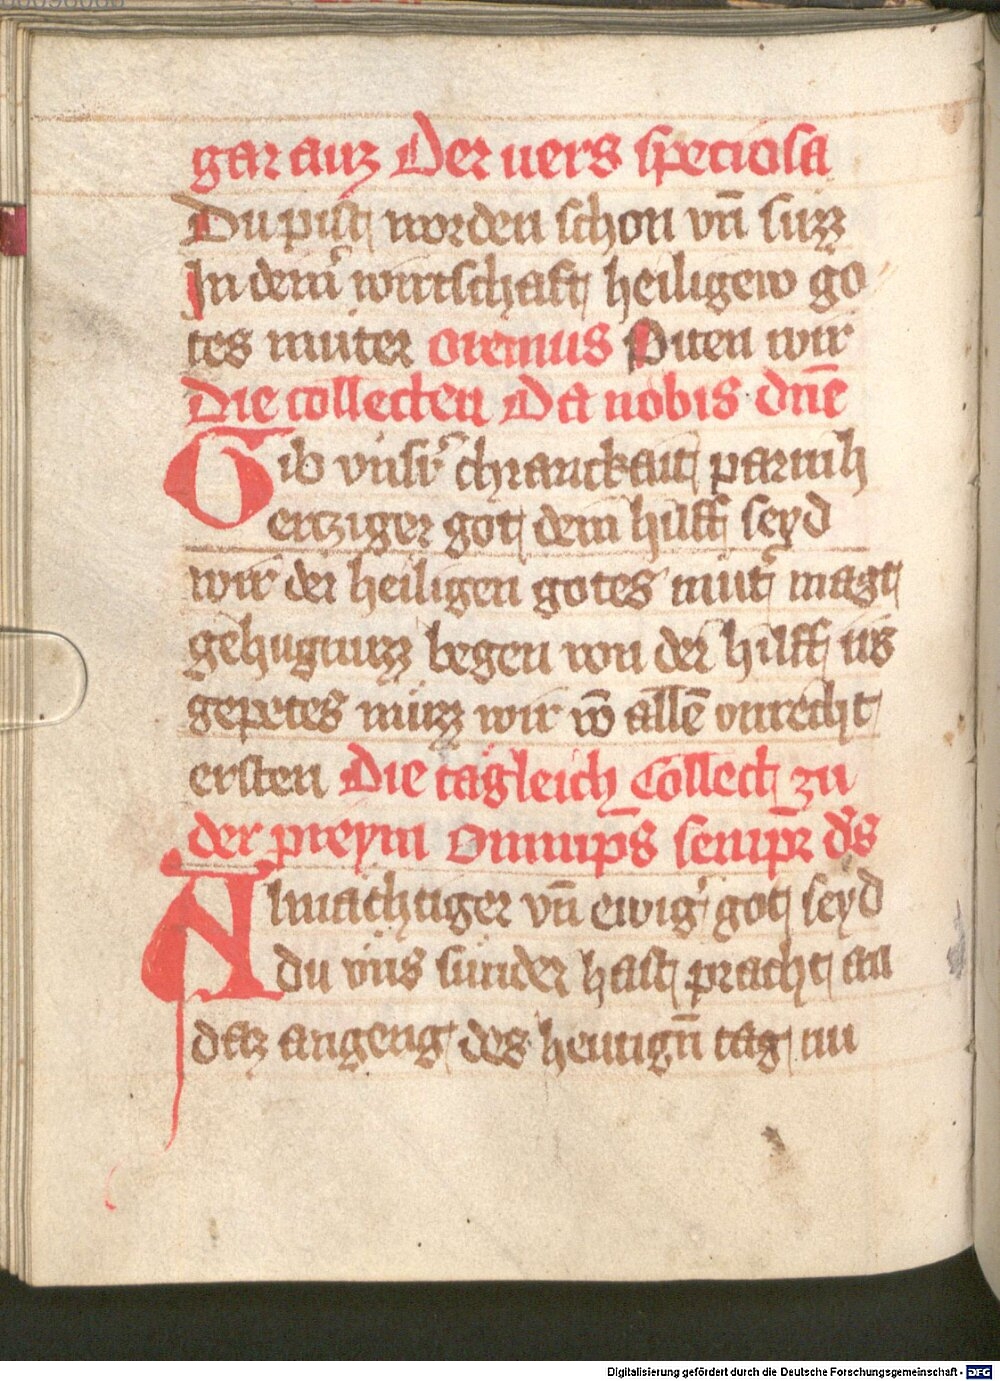 gar auz Der uers speciosa
Du pist worden schon vn̄ suzz
In deinˀ wirtschaft heiligew go
tes muter oremus Piten wir
Die collecten Da nobis dn̄e
Gib vnsˀ chranckait parmh
ertziger got dein hilff seyd
wir der heiligen gotes mutˀ magt
gehugnuzz begen von der hilff irs
gepetes müzz wir vō allē vnrecht
ersten Die tagleich Collect zu
der preym Omnip̄s semp̄r ds̄
Almächtiger vn̄ ewigˀ got seyd
du vns sünder hast pracht an
daz angeng des heutign̄ tag nu
Digitalisierung gefördert durch die Deutsche Forschungsgemeinschaft - DFG